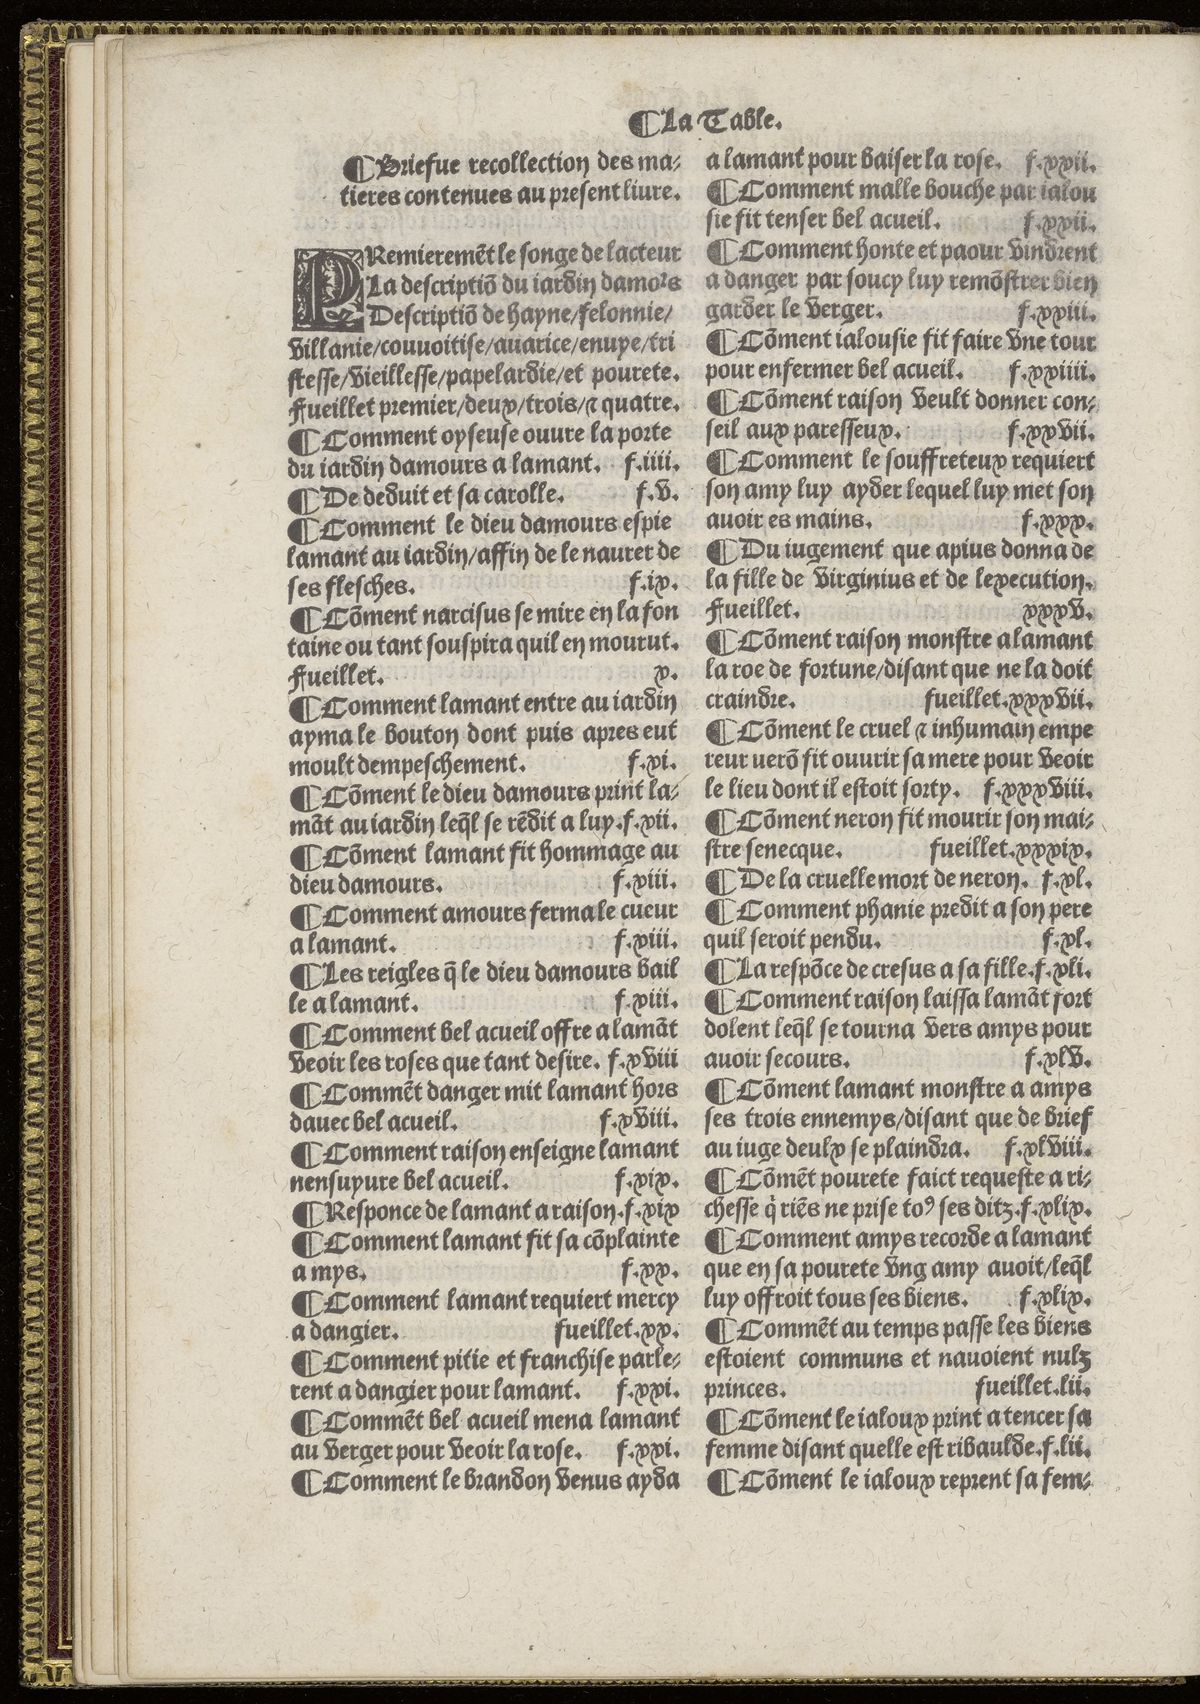 ¶La Table.
¶Briefue recollection des ma-
tieres contenues au present liure.
PRemieremẽt le songe de lacteur
La descriptiõ du iardin damors
Descriptiõ de hayne/felonnie/
villanie/couuoitise/auarice/enuye/tri
stesse/vieillesse/papelardie/et pourete.
Fueillet premier/deux/trois/⁊ quatre.
¶Comment oyseuse ouure la porte
du iardin damours a lamant. f.iiii.
¶De deduit et sa carolle. f.v.
¶Comment le dieu damours espie
lamant au iardin/affin de le naurer de
ses flesches. f.ix.
¶Cõment narcisus se mire en la fon
taine ou tant souspira quil en mourut.
Fueillet. x.
¶Comment lamant entre au iardin
ayma le bouton dont puis apres eut
moult dempeschement. f.xi.
¶Cõment le dieu damours print la-
mãt au iardin leq̃l se rẽdit a luy.f.xii.
¶Cõment lamant fit hommage au
dieu damours. f.xiii.
¶Comment amours ferma le cueur
a lamant. f.xiii.
¶Les reigles q̃ le dieu damours bail
le a lamant. f.xiii.
¶Comment bel acueil offre a lamãt
veoir les roses que tant desire. f.xviii
¶Commẽt danger mit lamant hors
dauec bel acueil. f.xviii.
¶Comment raison enseigne lamant
nensuyure bel acueil. f.xix.
¶Responce de lamant a raison.f.xix
¶Comment lamant fit sa cõplainte
a mys. f.xx.
¶Comment lamant requiert mercy
a dangier. fueillet.xx.
¶Comment pitie et franchise parle-
rent a dangier pour lamant. f.xxi.
¶Commẽt bel acueil mena lamant
au verger pour veoir la rose. f.xxi.
¶Comment le brandon venus ayda
a lamant pour baiser la rose. f.xxii.
¶Comment malle bouche par ialou
sie fit tenser bel acueil. f.xxii.
¶Comment honte et paour vindrent
a danger par soucy luy remõstrer bien
garder le verger. f.xxiii.
¶Cõment ialousie fit faire vne tour
pour enfermer bel acueil. f.xxiiii.
¶Cõment raison veult donner con-
seil aux paresseux. f.xxvii.
¶Comment le souffreteux requiert
son amy luy ayder lequel luy met son
auoir es mains. f.xxx.
¶Du iugement que apius donna de
la fille de virginius et de lexecution.
Fueillet. xxxv.
¶Cõment raison monstre a lamant
la roe de fortune/disant que ne la doit
craindre. fueillet.xxxvii.
¶Cõment le cruel ⁊ inhumain empe
reur nerõ fit ouurir sa mere pour veoir
le lieu dont il estoit sorty. f.xxxviii.
¶Cõment neron fit mourir son mai-
stre senecque. fueillet.xxxix.
¶De la cruelle mort de neron. f.xl.
¶Comment phanie predit a son pere
quil seroit pendu. f.xl.
¶La respõce de cresus a sa fille.f.xli.
¶Comment raison laissa lamãt fort
dolent leq̃l se tourna vers amys pour
auoir secours. f.xlv.
¶Cõment lamant monstre a amys
ses trois ennemys/disant que de brief
au iuge deulx se plaindra. f.xlviii.
¶Cõmẽt pourete faict requeste a ri-
chesse q̃ riẽs ne prise toꝰ ses ditz.f.xlix.
¶Comment amys recorde a lamant
que en sa pourete vng amy auoit/leq̃l
luy offroit tous ses biens. f.xlix.
¶Commẽt au temps passe les biens
estoient communs et nauoient nulz
princes. fueillet.lii.
¶Cõment le ialoux print a tencer sa
femme disant quelle est ribaulde.f.lii.
¶Cõment le ialoux reprent sa fem-